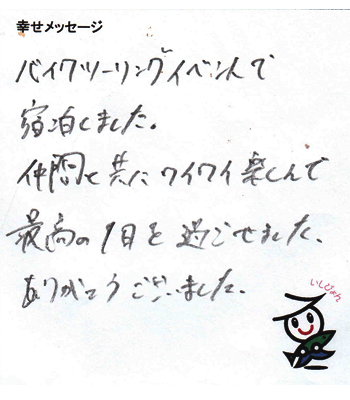 幸せメッセージ
バイクツーリングイベントで
宿泊しました。
仲間と共にワイワイ楽しんで
最高の1日を過ごせました、
ありがとうございました。
いしぴょん